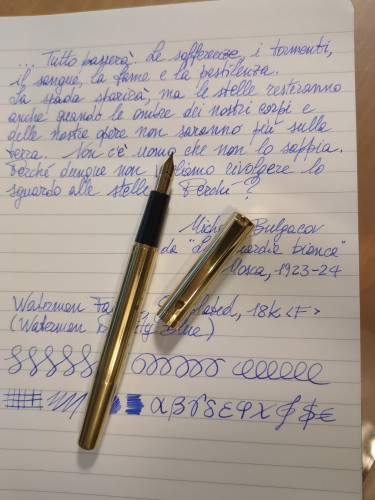 ... Tutto passerà. Le sofferenze, i tormenti,
il sangue, la fame e la pestilenza.
La spada sparirà, ma le stelle resteranno
anche quando le ombre dei nostri corpi e
delle nostre opere non saranno più sulla
terra. Non c'è uomo che non lo sappia.
Perché dunque non rivolgere lo
sguardo alle stelle? Perché?
Bulgacov
da "La guardia bianca"
Mosca, 1923-24
Waterman plated, 18k <F>
(Waterman Blue)
α β γ δ ε φ χ ∮ $ €